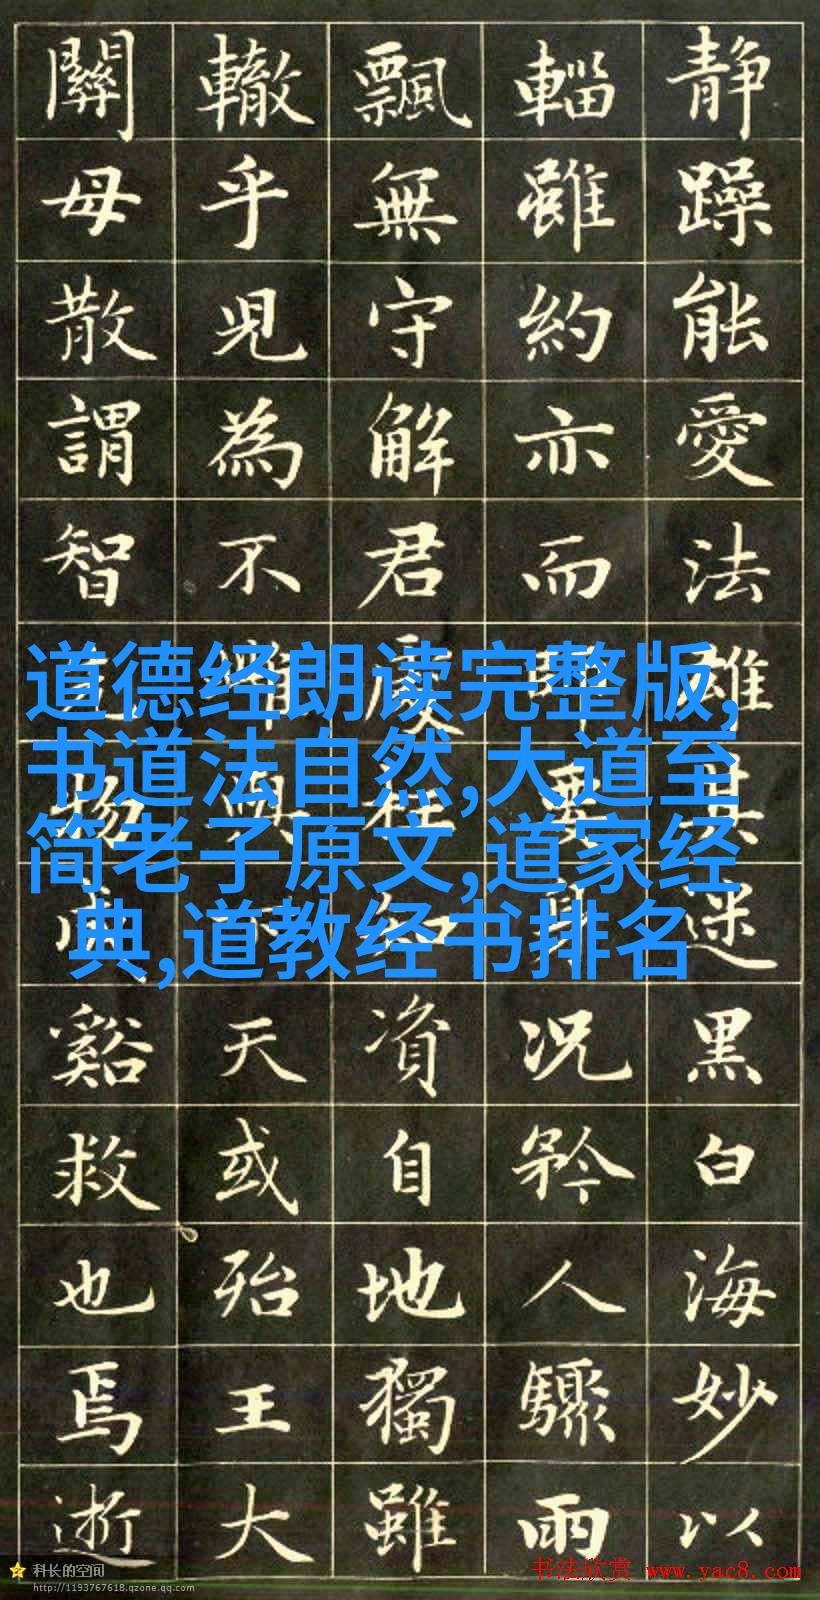 静躁能愛法雄其迷黑白海妙以
輜雖約亦而況矜人驟雨
飄無守解君處資自地獨雖
轍乎児為不天或殆王大
關母散謂智物谿救也焉逝
道德经朗读完整版,
书道法自然,大道至
简老子原文,道家经
典,道教经书排名
科长的空间
http://1193767618.qzone.qq.com
书法欣赏 www.yac8.com